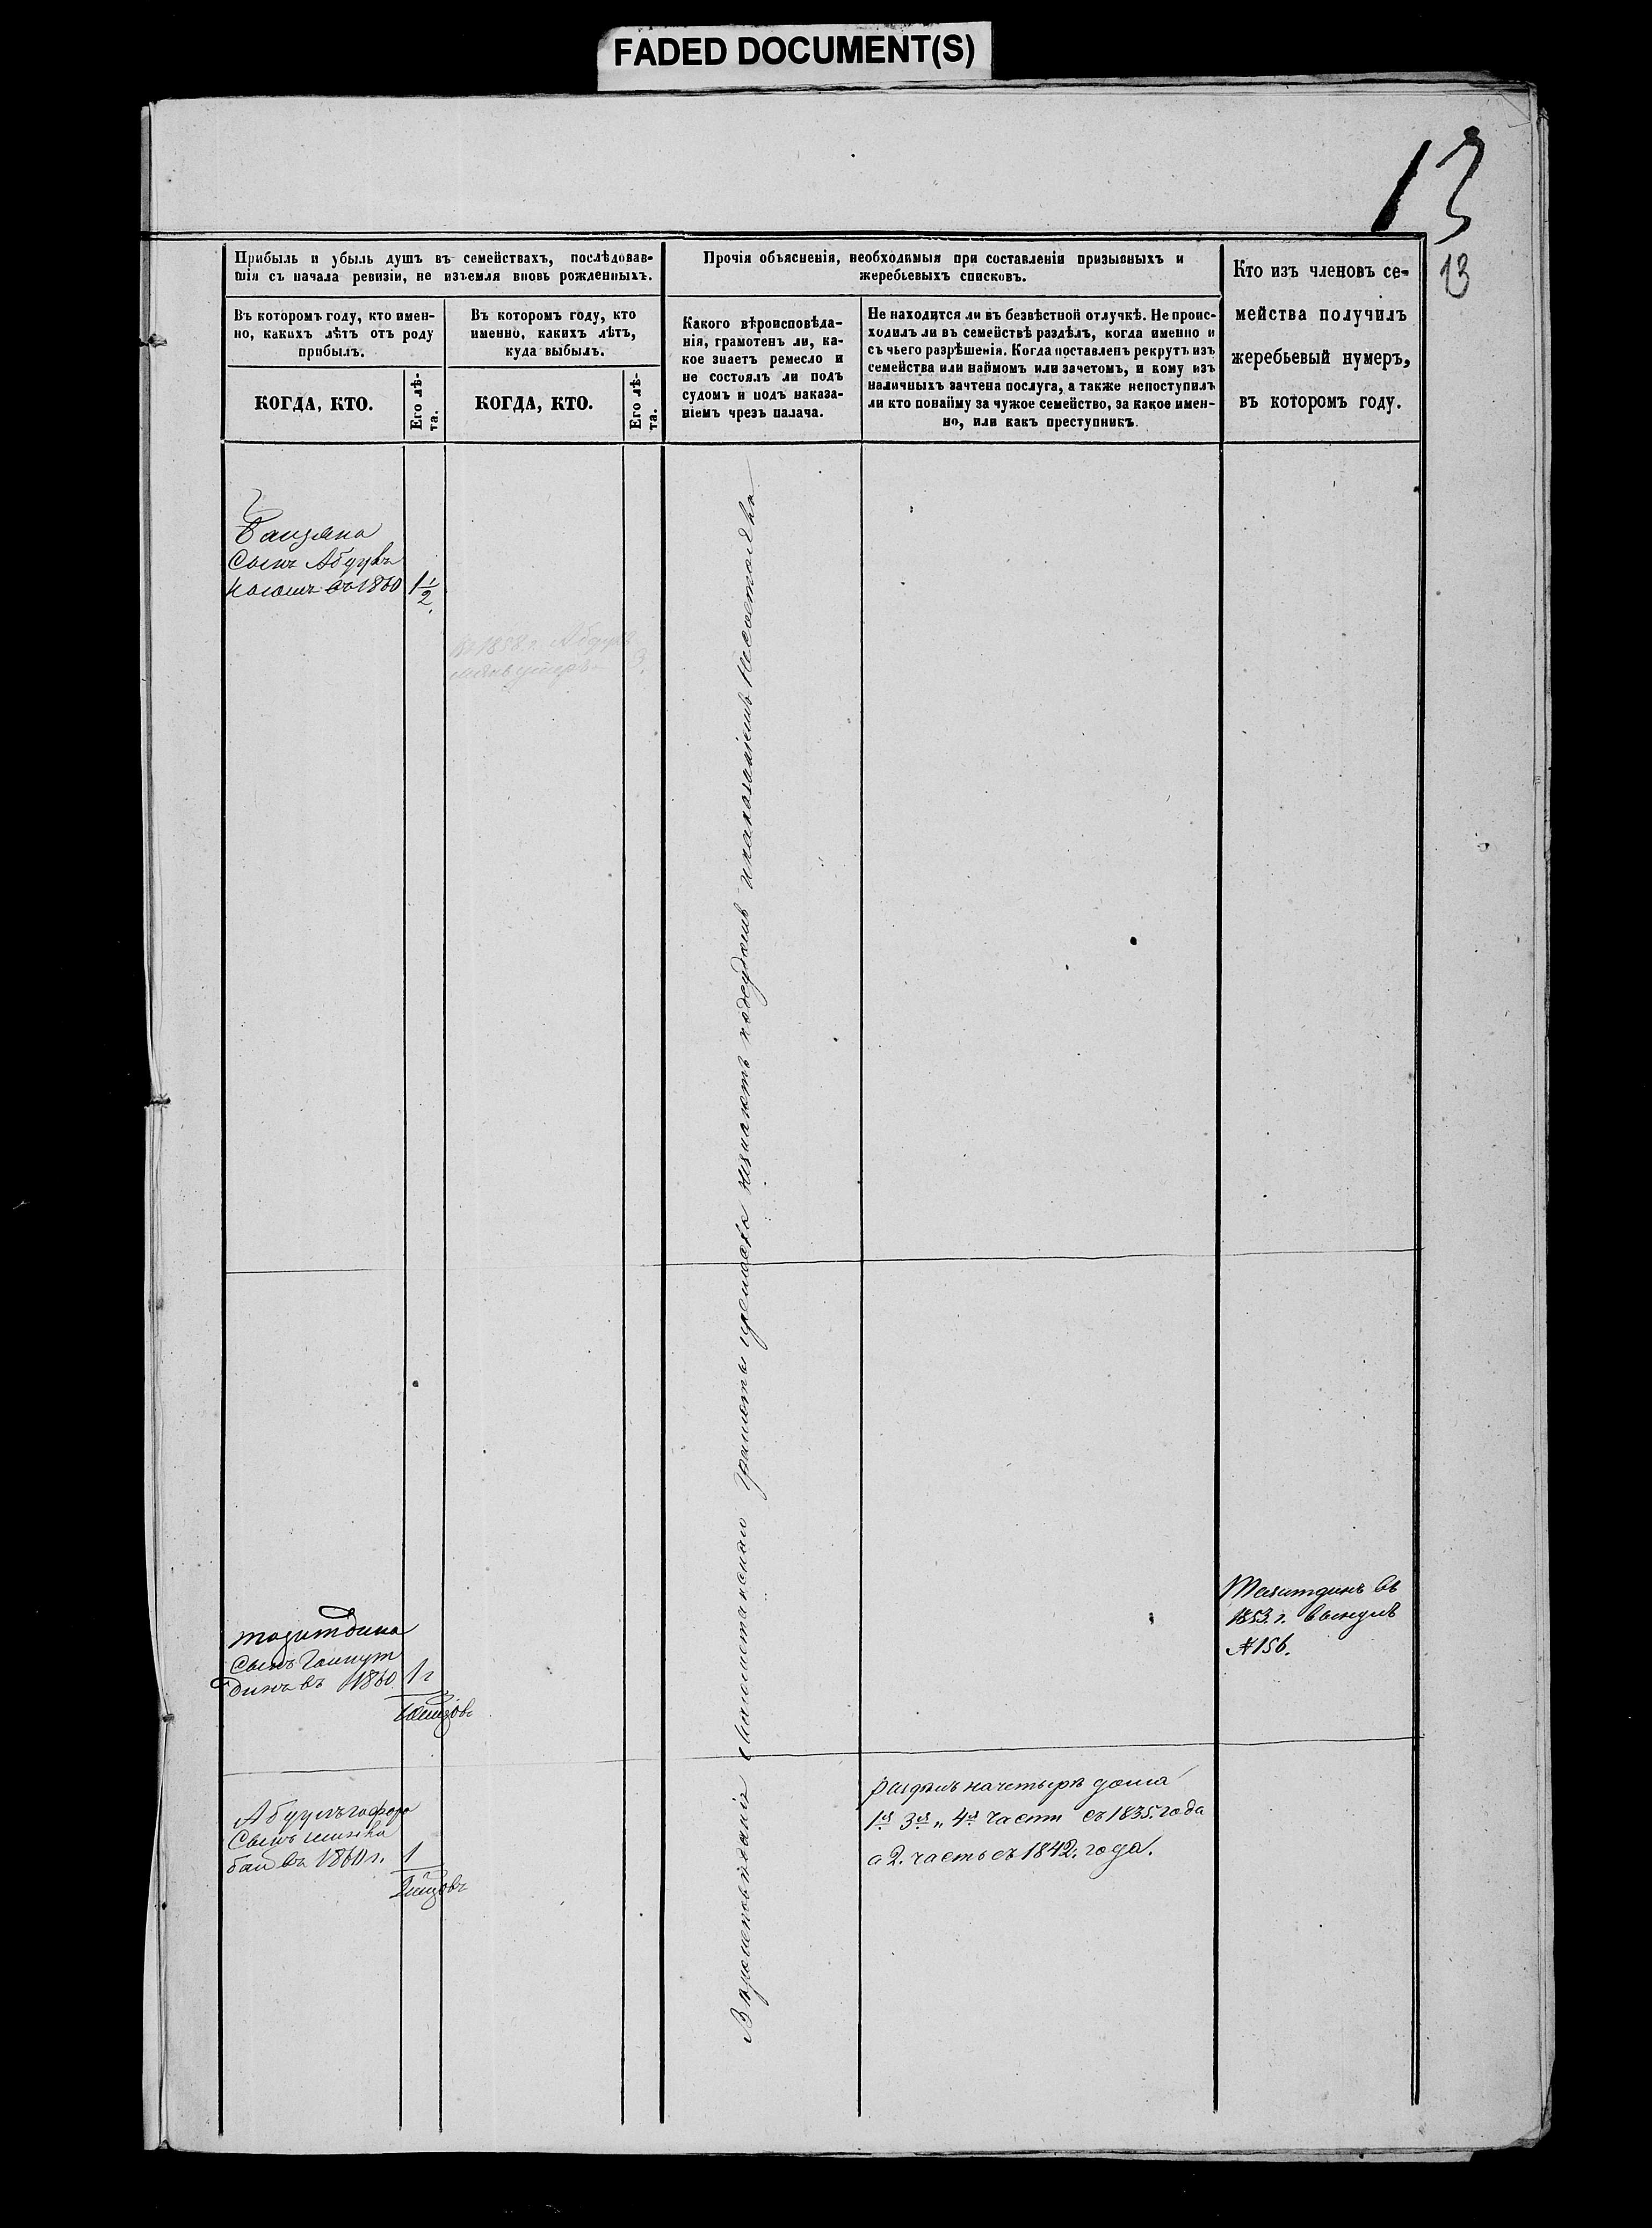 FADED DOCUMENT(S)
13
13
Прибыль и убыль душъ въ семействахъ, послѣдовав-
шія съ начала ревизіи, не изъемля вновь рожденныхъ.
Въ которомъ году, кто имен-
но, какихъ лѣтъ отъ роду
прибылъ.
КОГДА, КТО.
Его лѣ-
та.
Въ которомъ году, кто
именно, какихъ лѣтъ,
куда выбылъ.
КОГДА, КТО.
Его лѣ-
та.
Прочія объясненія, необходимыя при составленіи призывныхъ и
жеребьевыхъ списковъ.
Какого вѣроисповѣда-
нія, грамотенъ ли, ка-
кое знаетъ ремесло и
не состоялъ ли подъ
судомъ и подъ наказа-
ніемъ чрезъ палача.
Не находится ли въ безвѣстной отлучкѣ. Не проис-
ходилъ ли въ семействѣ раздѣлъ, когда именно и
съ чьего разрѣшенія. Когда поставленъ рекрутъ изъ
семейства или наймомъ или зачетомъ, и кому изъ
наличныхъ зачтена послуга, а также непоступилъ
ли кто понайму за чужое семейство, за какое имен-
но, или какъ преступникъ.
Кто изъ членовъ се-
мейства получилъ
жеребьевый нумеръ,
въ которомъ году.
Сынъ
въ 1860 1½
въ 1858 г. умеръ 3.
Вѣроисповѣданія Магометанскаго грамоты и ремесла незнаютъ подсудомъ и наказаніемъ несостояли
Сынъ
динъ въ 1860 1 г
въ
1853 г. вынулъ
№ 156.
Сынъ
бай въ 1860 г. 1
раздѣлъ на четыре дома
1я 3я и 4я части съ 1835 года
а 2. часть съ 1842. года.